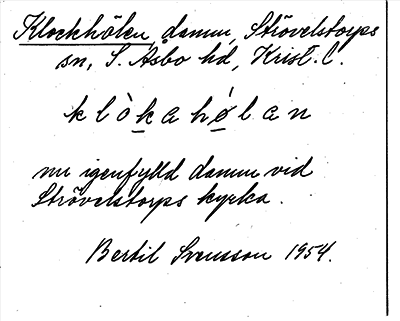 Klockhålen, damm, Strövelstorps
sn, S. Åsbo hd, Krist. l.
k l ò k a h ø l a n
nu igenfylld damm vid
Strövelstorps kyrka.
Bertil Svensson 1954.